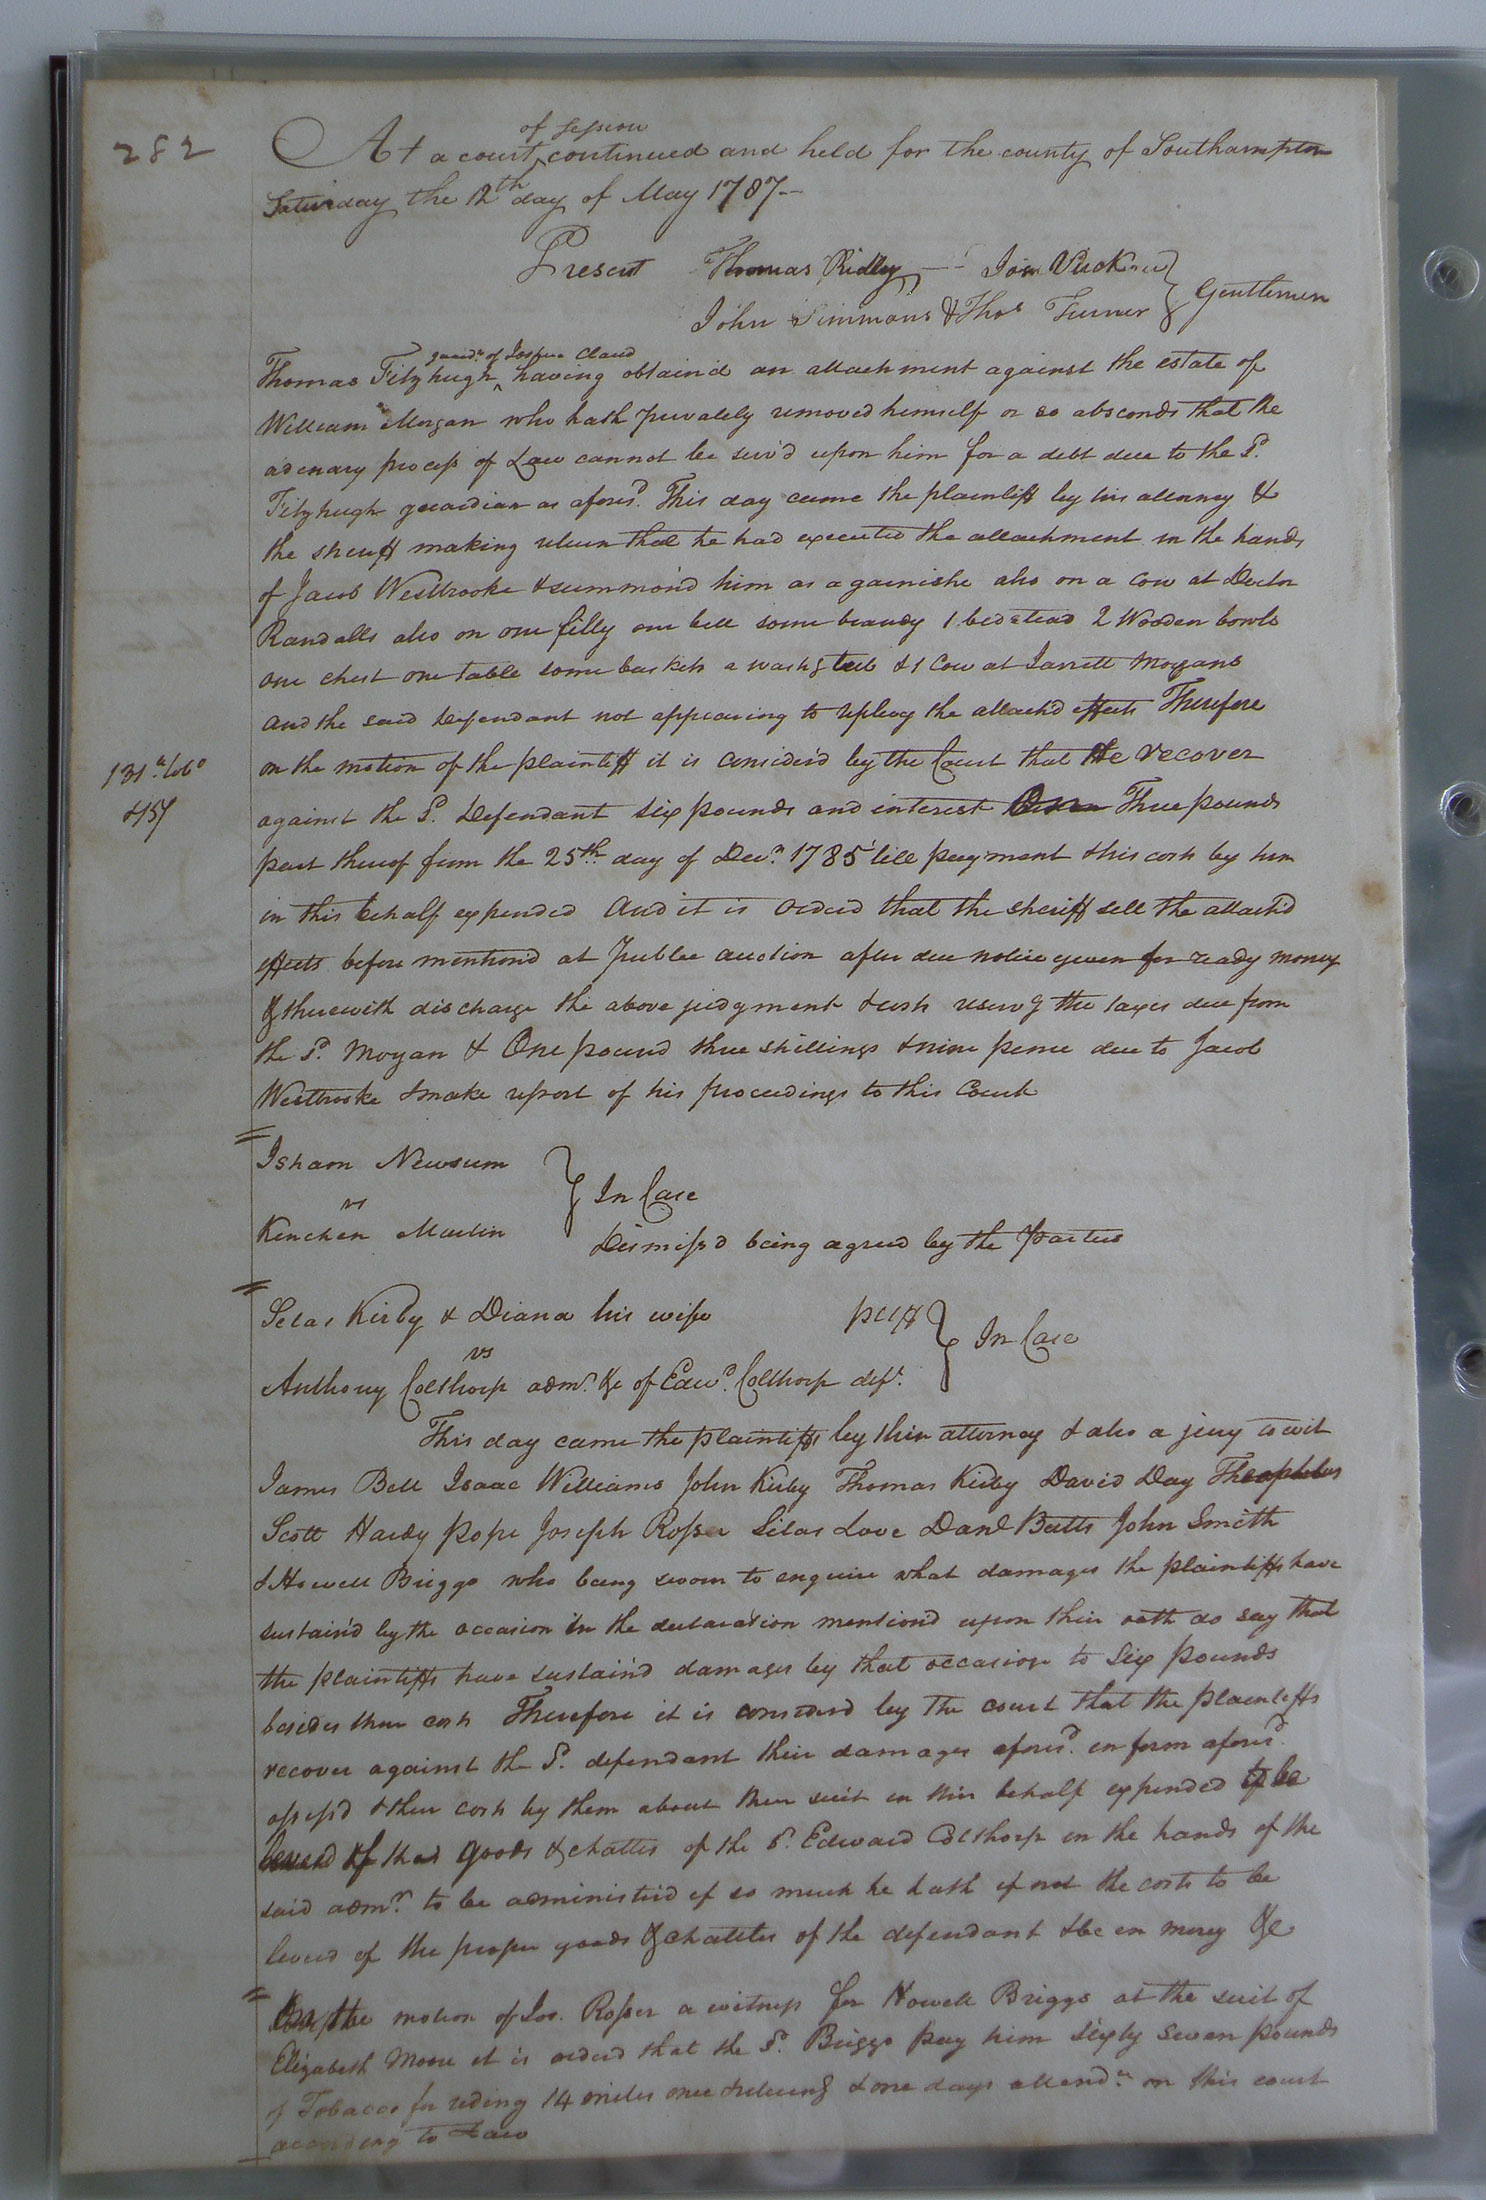 282
of Session
At a court continued and held for the county of Southampton
Saturday the 12th day of May 1787-
Present Thomas Ridley -- Jos Vick
John Simmons & Thos Turner } Gentlemen
guardn of Joshua Claud
Thomas Fitzhugh ^ having obtain'd an attachment against the estate of
William Morgan who hath privately removed himself or so absconds that the
ordenary process of Law cannot be serv'd upon him for a debt due to the Sd
Fitzhugh guardian as aforesd. This day came the plaintiff by his attorney &
the sheriff making return that he had executed the attachment in the hands
of Jacob Westbrooke & summon'd him as a garnishe also on a cow at Doctor
Randalls also on one filly one bell some brandy 1 bedstead 2 Wooden bowls
one chest one table some baskets a washg tub & 1 Cow at Jarrett Morgans
and the said Defendant not appearing to replevy the attach'd effects Therefore
on the motion of the plaintiff it is consider'd by the Court that He recover
131 a tobo
&15/
against the Sd. Defendant six pounds and interest on Three pounds
part thereof from the 25th day of Decr. 1785 till payment & his costs by him
in this behalf expended and it is orderd that the sheriff sell the attach'd
effects before mention'd at Publec auction after due notice given for ready money
& therewith discharge the above judgment & costs reservg the taxes due from
the sd. Morgan & One pound three shillings & nine pence due to Jacob
Westbrooke & make report of his proceedings to this Court
Isham Newsum
vs } In Case
Kinchen Martin
Dismiss'd being agreed by the Parties
Selas Kirby & Diana his wife pltff
vs } In Case
Anthony Colthorp admr. &c of Edwd. Colthorp deft.
This day came the plaintiffs by their attorney & also a jury to wit
James Bell Isaac Williams John Kirby Thomas Kirby David Day Theophilus
Scott Hardy Pope Joseph Rosser Silas Love Danl Butts John Smith
& Howell Briggs who being sworn to enquire what damages the plaintiffs have
sustain'd by the occasion in the declaration mention'd upon their oath do say that
the plaintiffs have sustain'd damages by that occasion to Six pounds
besides their costs Therefore it is considerd by the court that the plaintiffs
recover against the Sd. defendant their damages aforesd. in form aforesd.
assess'd & their costs by them about their suit in this behalf expended to be
levied of the goods & chattes of the sd. Edward Colthorp in the hands of the
said admr. to be administer'd if so much he hath if not the costs to be
levied of the proper goods & chattles of the defendant & be in mercy &c
On the motion of Jos. Rosser a witness for Howell Briggs at the suit of
Elizabeth Moore it is orderd that the sd. Briggs pay him sixty seven pounds
of Tobacco for riding 14 miles once & returng & one days attendce on this court
according to Law